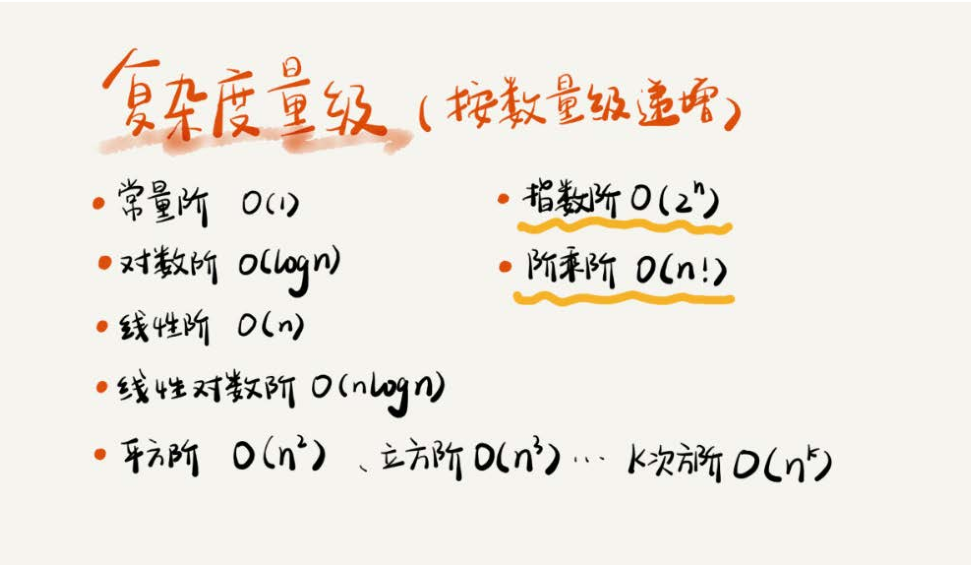 复杂度量级（按数量级递增）
• 常量阶 O(1)
• 对数阶 O(logn)
• 线性阶 O(n)
• 线性对数阶 O(nlogn)
• 平方阶 O(n²)、立方阶 O(n³)… k次方阶 O(nᵏ)
• 指数阶 O(2ⁿ)
• 阶乘阶 O(n!)